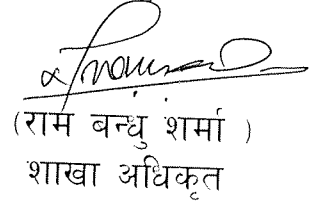 (राम बन्धु शर्मा )
शाखा अधिकृत